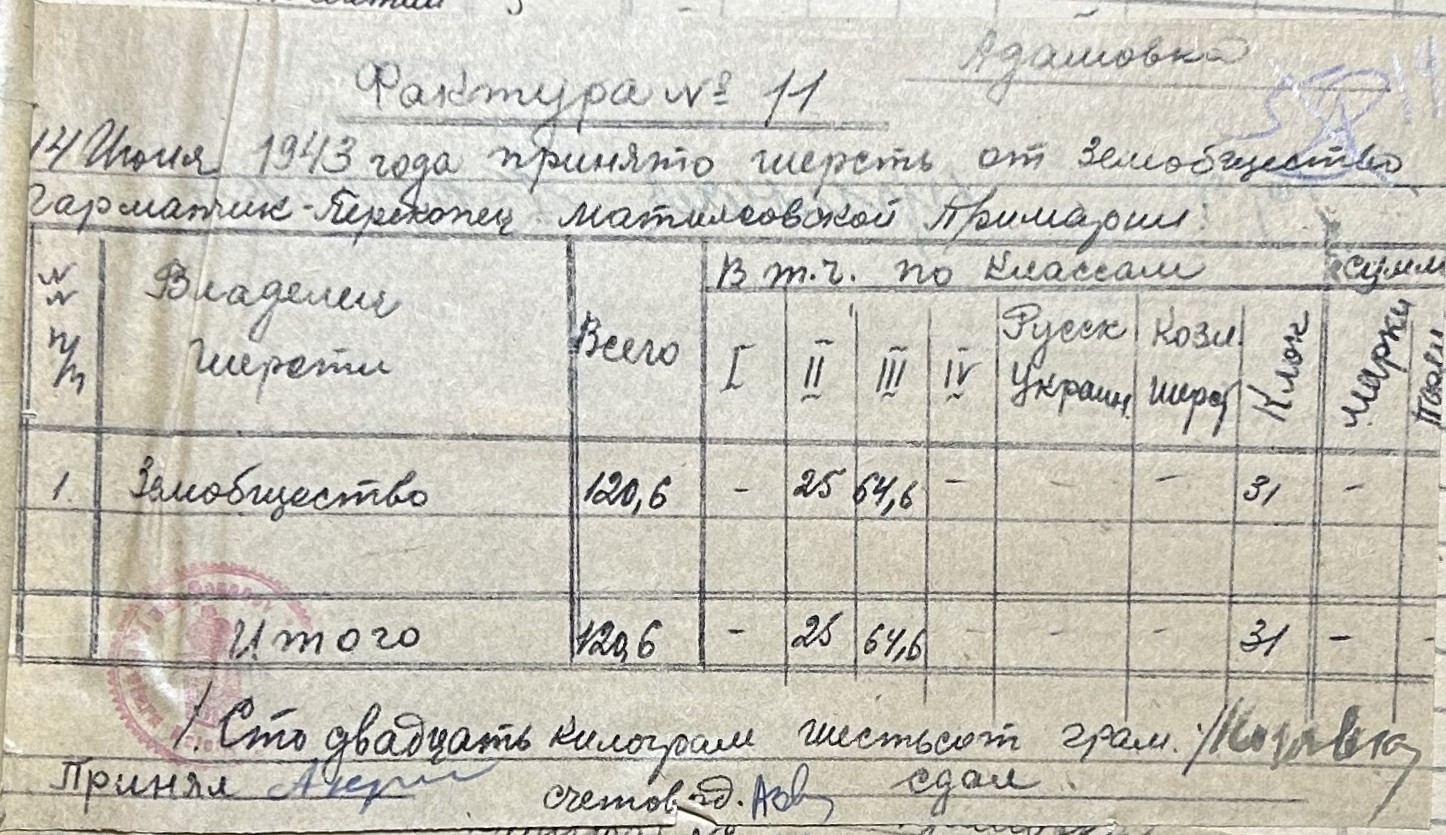 Адамовка
Фактура № 11
14 Июня 1943 года принято шерсть от Земобщество
Гарманчик-Перекопец Матиясовской Примарии.
№№ п/п Владелец шерсти Всего В т.ч. по классам сумм
I II III IV Русск Украин Козл. шерст Клок марки
1. Земобщество 120,6 - 25 64,6 - - - 31 -
Итого 120,6 - 25 64,6 - - - 31 - -
/. Сто двадцать килограм шестьсот грам. /
Принял счетовод. сдал